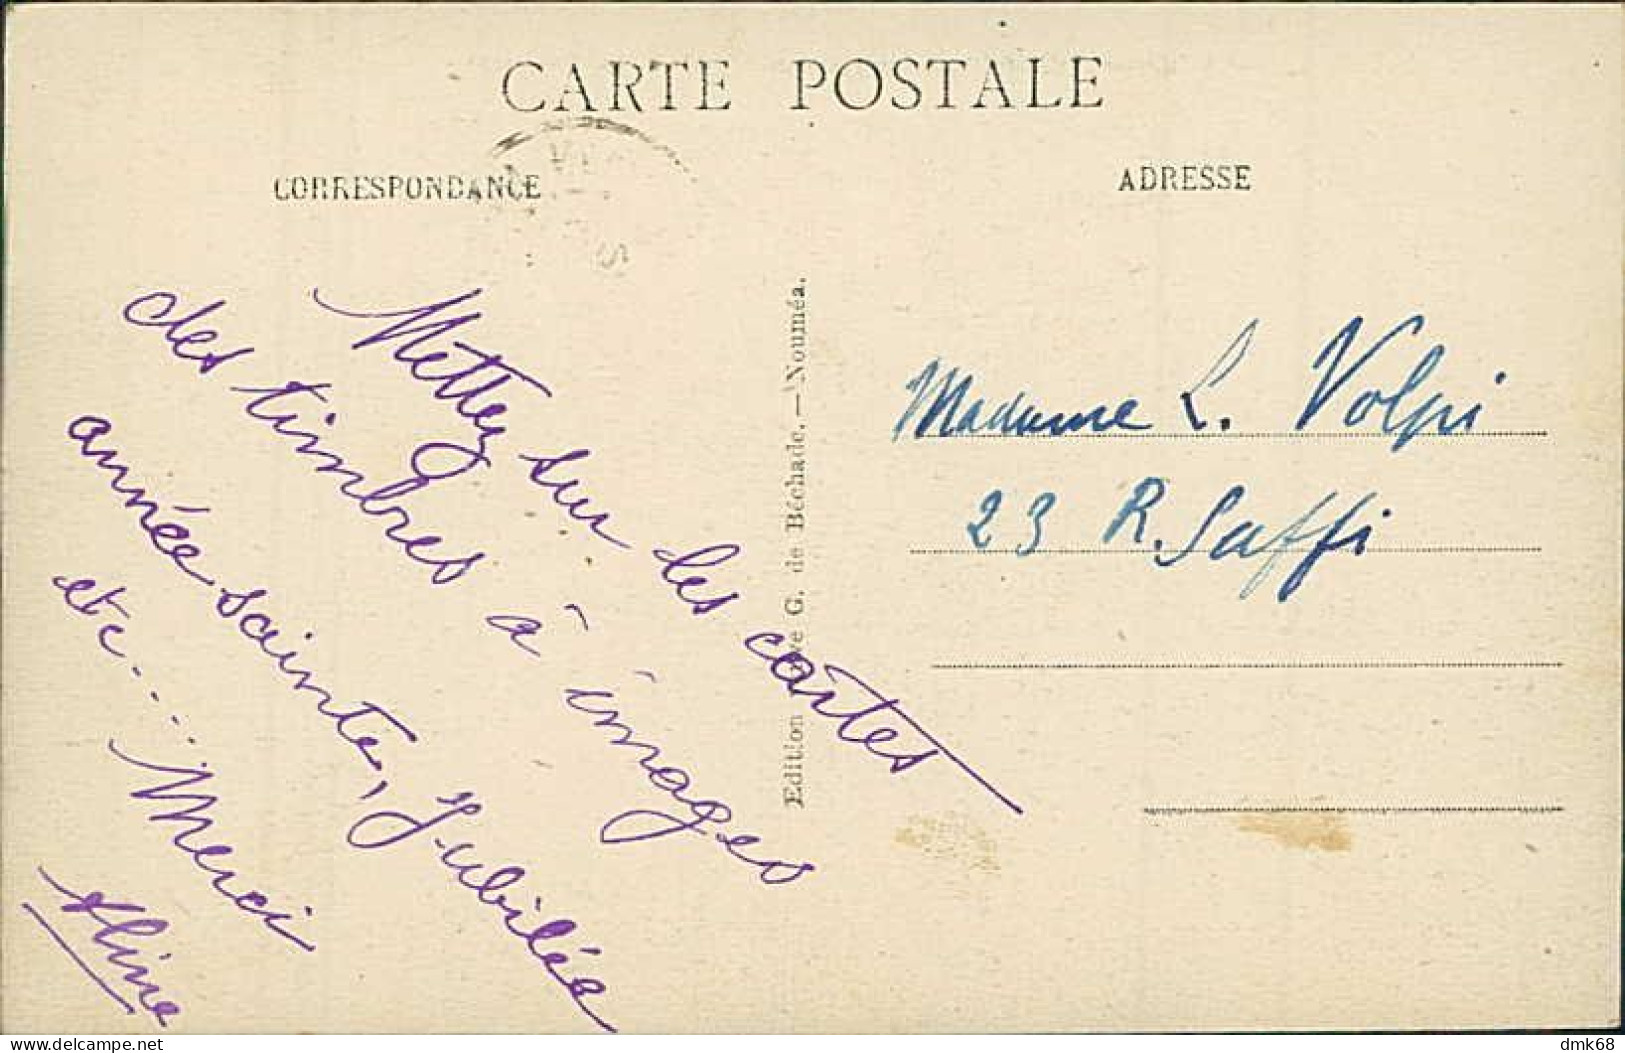 CARTE POSTALE
CORRESPONDANCE
ADRESSE
Mettez sur des cartes
des timbres à images
année sainte, Jubilée
etc....
Merci
Aline
Edition G. de Béchade.—Nouméa.
Madame L. Volpi
23 R. Saffi
delcampe.net
dmk68